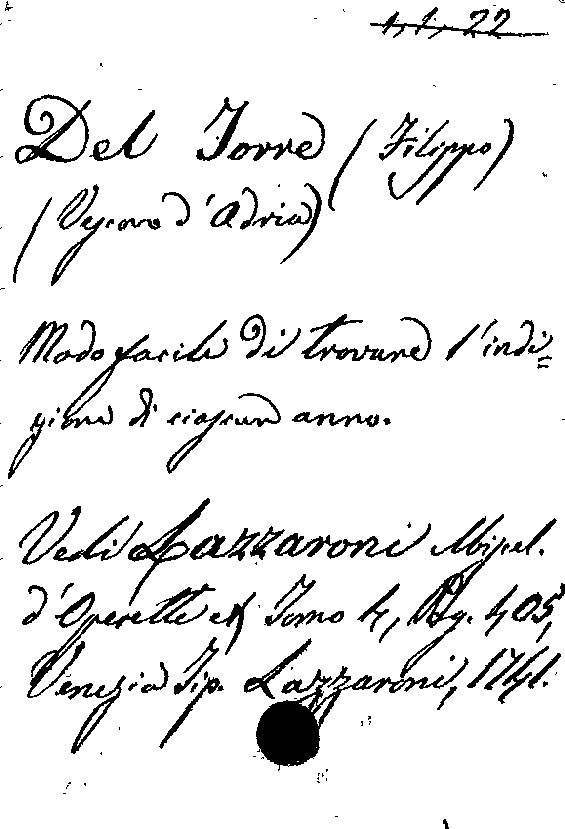 1, 1, 22
Del Torre (Filippo)
(Vescovo d'Adria)
Modo facile di trovare l'indi=
zione di ciascun anno.
Vedi Lazzaroni Miscel.
d'Operette etc Tomo 4, Pag. 405,
Venezia Tip. Lazzaroni, 1741.